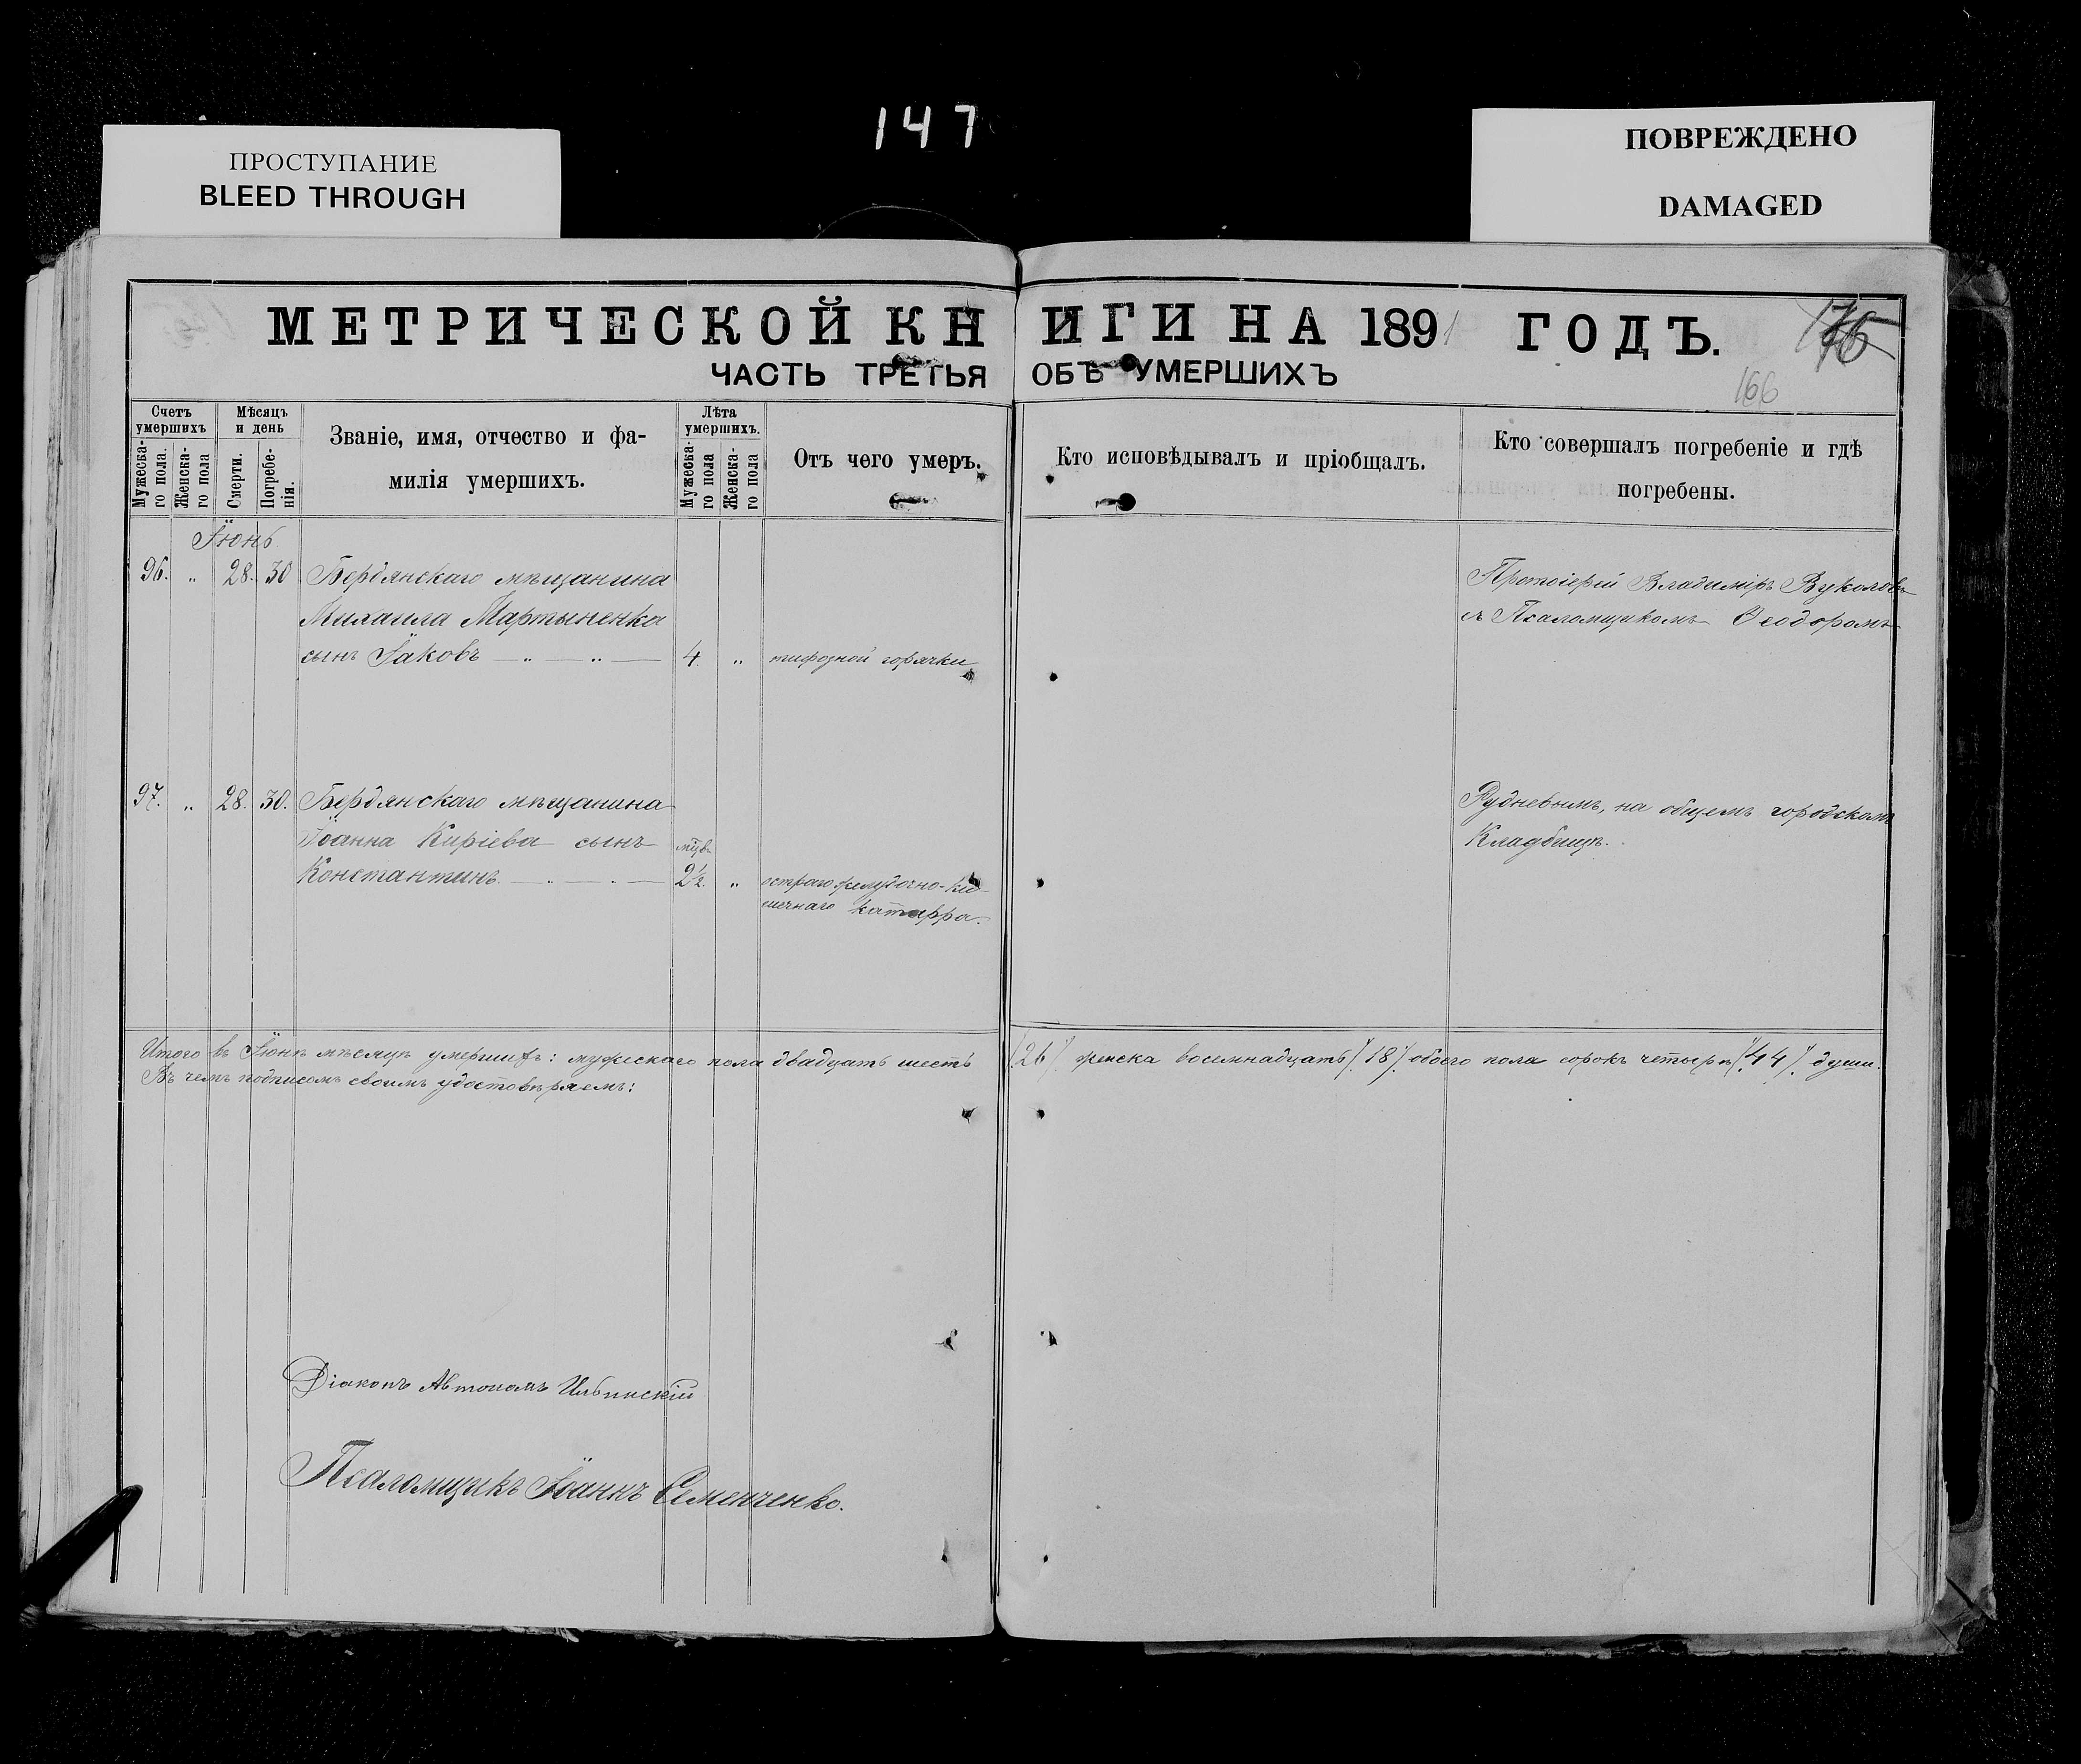 147
ПРОСТУПАНИЕ
BLEED THROUGH
ПОВРЕЖДЕНО
DAMAGED
МЕТРИЧЕСКОЙ КНИГИ НА 1891 ГОДЪ.
ЧАСТЬ ТРЕТЬЯ ОБЪ УМЕРШИХЪ
166
Счетъ умершихъ
Мужеска-го пола.
Женска-го пола
Мѣсяцъ и день
Смерти.
Погребе-нія.
Званіе, имя, отчество и фа-
милія умершихъ.
Лѣта умершихъ.
Мужеска-го пола
Женска-го пола
Отъ чего умеръ.
Кто исповѣдывалъ и пріобщалъ.
Кто совершалъ погребеніе и гдѣ
погребены.
Іюнь
96. " 28. 30 Бердянскаго мѣщанина
Михаила Мартыненка
сынъ Іаковъ — " — " — 4. " тифозной горячки
Протоіерей Владиміръ Вуколовъ
съ Псаломщикомъ Ѳеодоромъ
97. " 28. 30. Бердянскаго мѣщанина
Іоанна Киріева сынъ
Константинъ — " — " — 2½ " остраго желудочно-ки-
шечнаго катарра.
Рудневымъ, на общемъ городскомъ
Кладбищѣ.
Итого въ Іюнѣ мѣсяцѣ умершихъ: мужескаго пола двадцать шесть /26/. женска восемнадцать /18/. обоего пола сорокъ четыре /44/. души.
Въ чемъ подписомъ своимъ удостовѣряемъ:
Діаконъ Автономъ Ильинскій
Псаломщикъ Іоаннъ Семенченко.